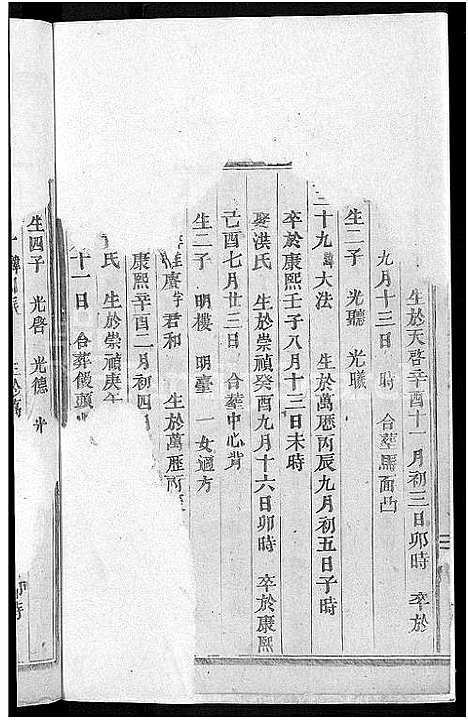 生於天啓辛酉十一月初三日卯時 卒於
九月十三日 時 合葬馬面凸
生二子 光聽 光曦
三十九諱大法 生於萬厯丙辰九月初五日子時
卒於康熙壬子八月十三日未時
娶洪氏 生於崇禎癸酉九月十六日卯時 卒於康熙
己酉七月廿三日 合葬中心背
生二子 明樓 明臺 一女適方
賡字君和 生於萬厯丙
康熙辛酉二月初四
氏 生於崇禎庚午
十一日 合葬儀頭
生四子 光啓 光德